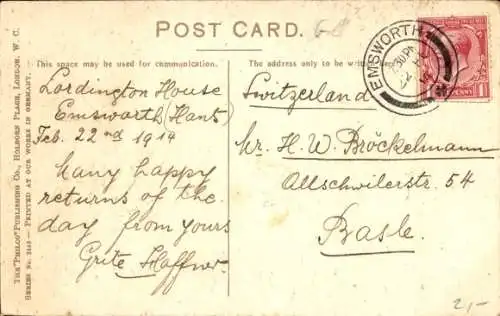 POST CARD.
This space may be used for communication.
The address only to be written here.
Lordington House
Emsworth (Hants)
Feb. 22nd 1914
Many happy
returns of the
day from yours
Grite Haffner.
Switzerland
Hr. H. W. Bröckelmann
Allschwilerstr. 54
Basle.
EMSWORTH
THE "PHILCO" PUBLISHING CO., HOLBORN PLACE, LONDON, W. C.
SERIES No. — PRINTED AT OUR WORKS IN GERMANY.
2,-